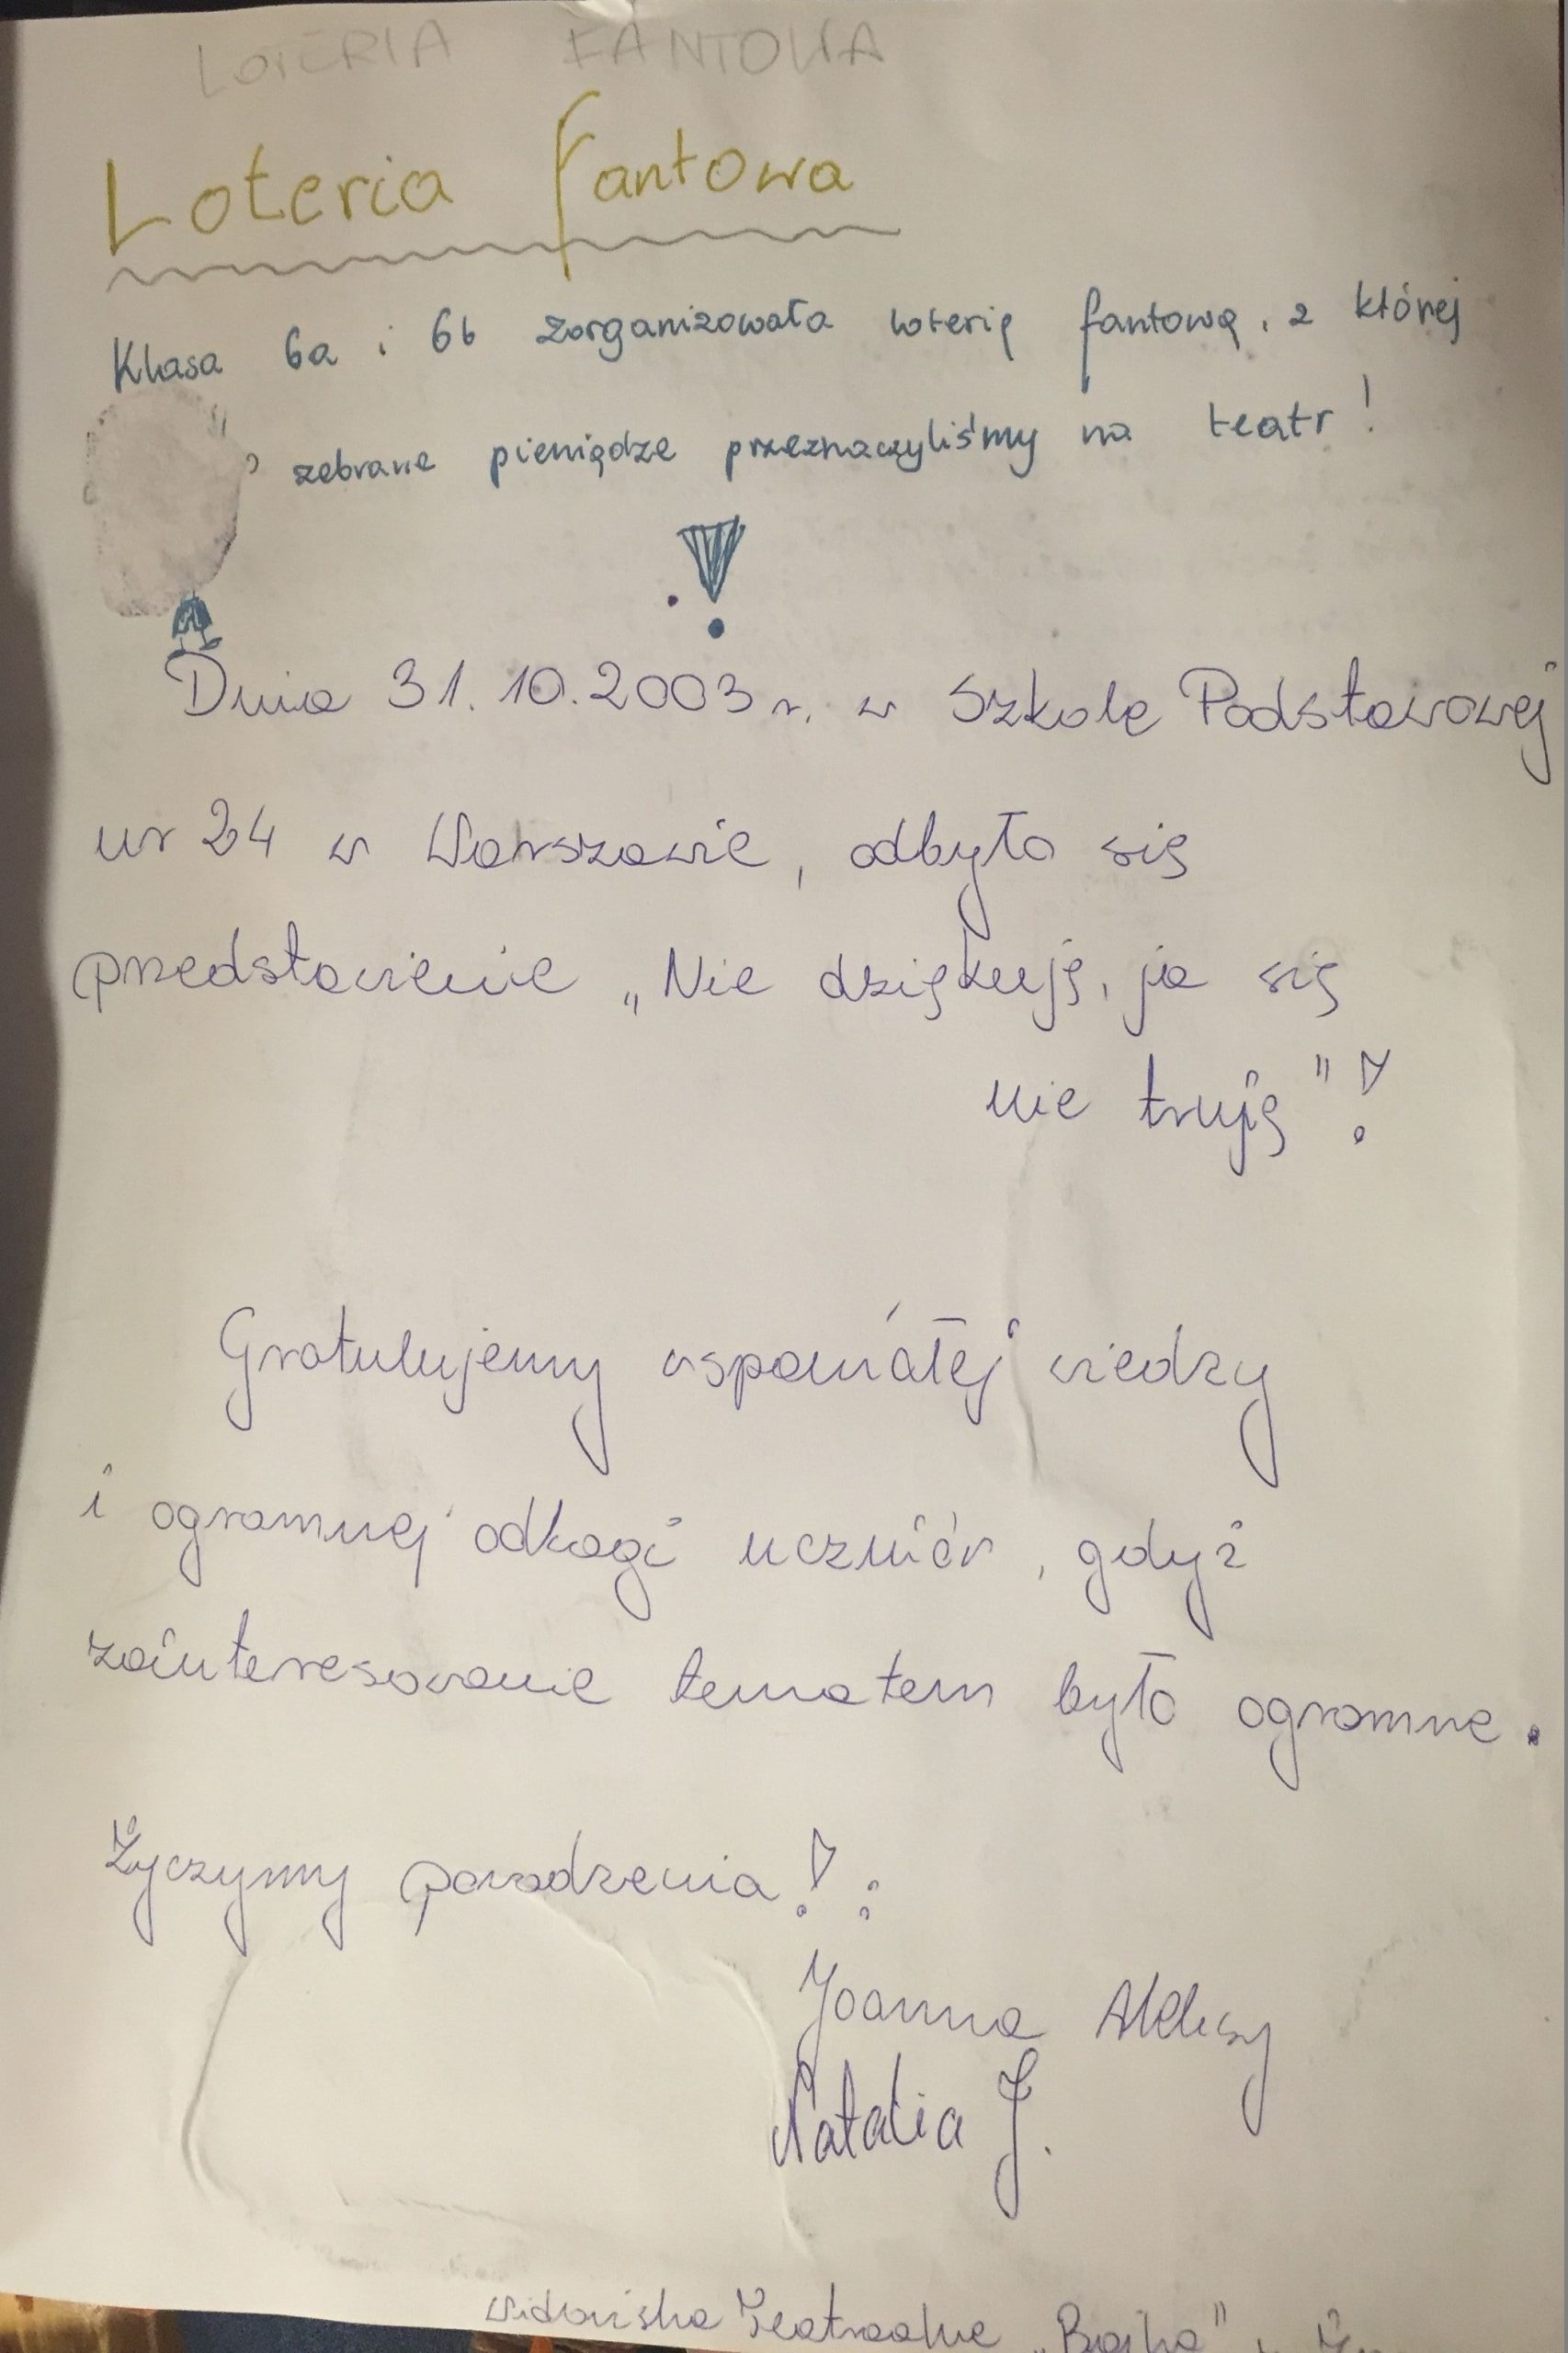 LOTERIA FANTOWA
Loteria fantowa
Klasa 6a i 6b zorganizowała loterię fantową, z której
zebrane pieniądze przeznaczyliśmy na teatr!
!
Dnia 31.10.2003 r. w Szkole Podstawowej
nr 24 w Warszawie, odbyło się
przedstawienie „Nie dziękuję, ja się
nie truję"!
Gratulujemy wspaniałej wiedzy
i ogromnej odwagi uczniów, gdyż
zainteresowanie tematem było ogromne.
Życzymy powodzenia!
Joanna
Natalia J.
Widowiska Teatralne „Bajka"